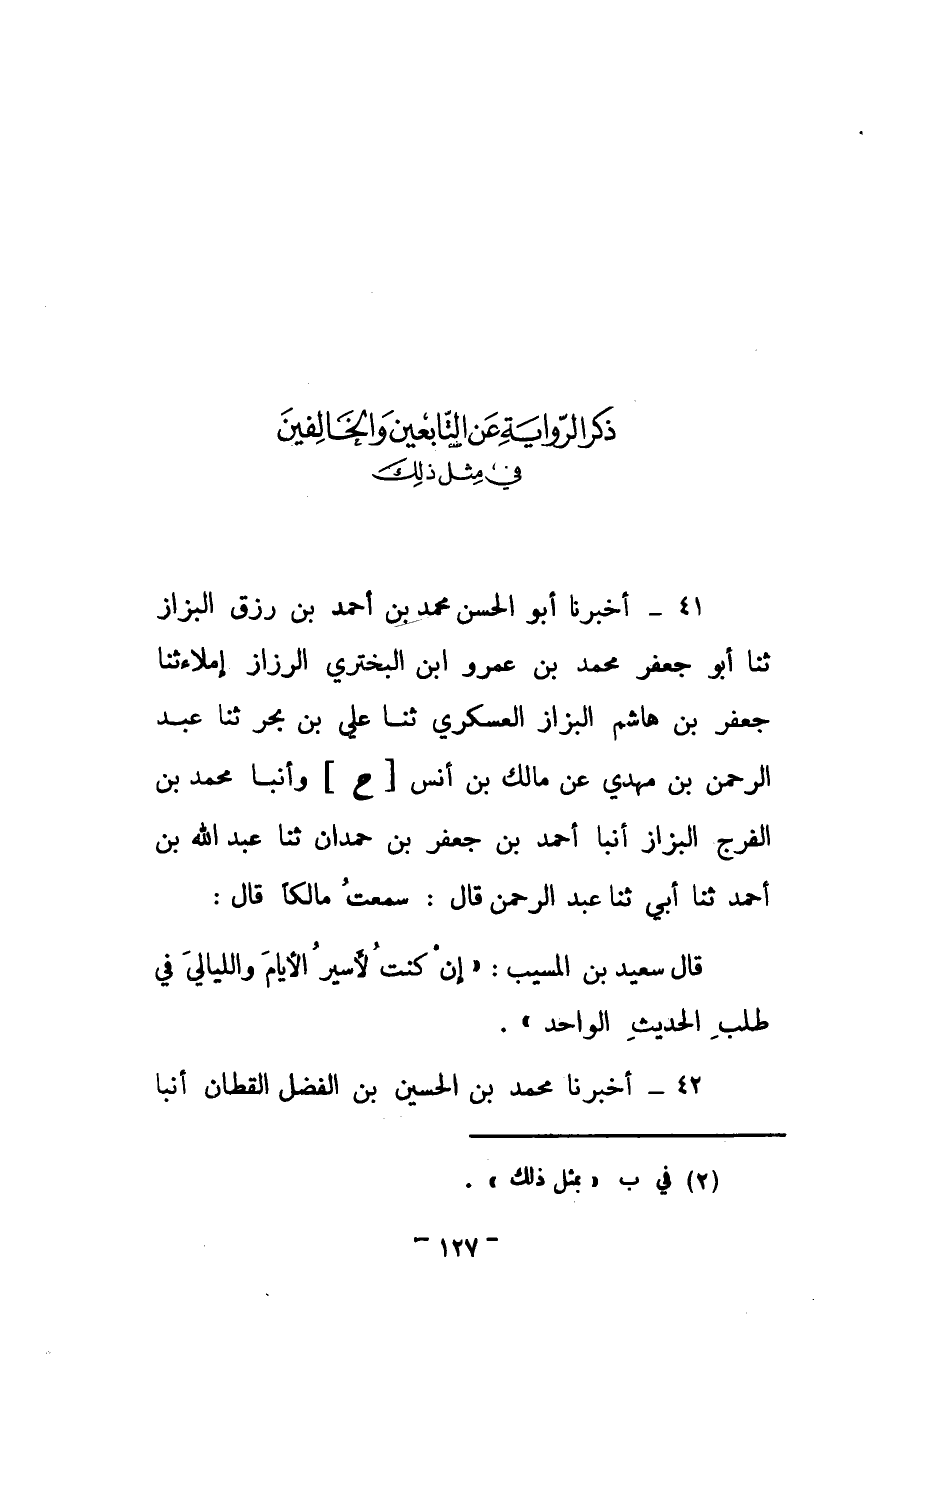 ذكر الرّوايَةِ عَن التّابعين وَالخَالِفينَ
في مِثل ذلِكَ
٤١ ـ أخبرنا أبو الحسن محمد بن أحمد بن رزق البزاز
ثنا أبو جعفر محمد بن عمرو ابن البختري الرزاز إملاء ثنا
جعفر بن هاشم البزاز العسكري ثنا علي بن بحر ثنا عبد
الرحمن بن مهدي عن مالك بن أنس [ ح ] وأنبا محمد بن
الفرج البزاز أنبا أحمد بن جعفر بن حمدان ثنا عبد الله بن
أحمد ثنا أبي ثنا عبد الرحمن قال : سمعتُ مالكاً قال :
قال سعيد بن المسيب : « إنْ كنتُ لأسيرُ الأيامَ والليالِيَ في
طلبِ الحديثِ الواحد » .
٤٢ ـ أخبرنا محمد بن الحسين بن الفضل القطان أنبا
(٢) في ب « بمثل ذلك » .
- ١٢٧ -